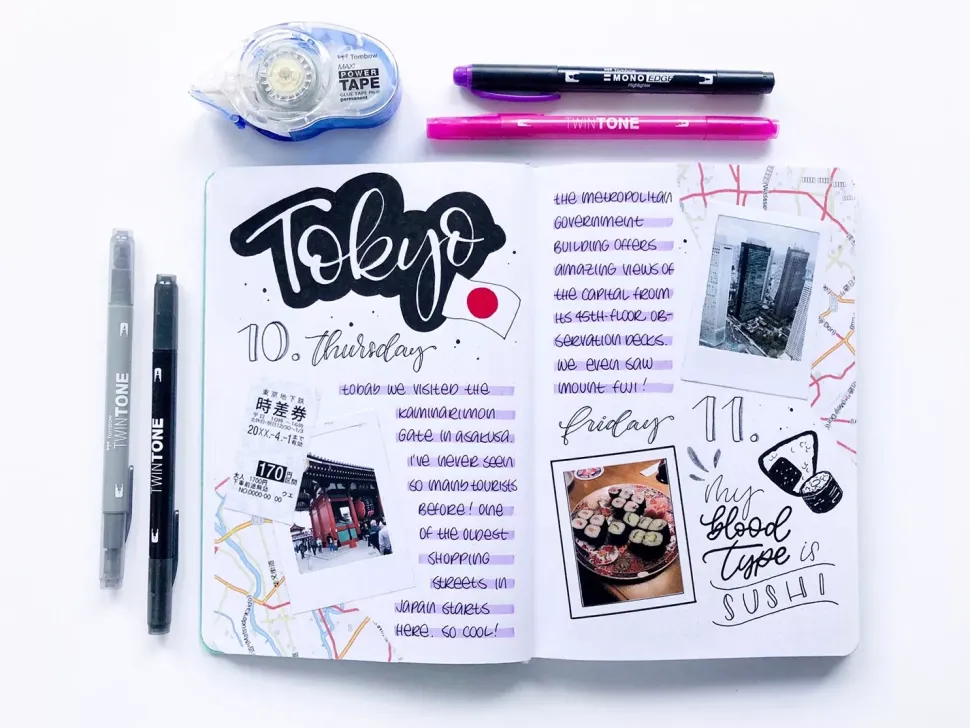 Tombow
MAX!
POWER
TAPE
GLUE TAPE
permanent
Tombow
MONO EDGE
Highlighter
TWINTONE
Tombow TWINTONE
TWINTONE
Tokyo
10. thursday
today we visited the
kaminarimon
gate in asakusa.
i've never seen
so many tourists
before! one
of the oldest
shopping
streets in
Japan starts
here. so cool!
東京地下鉄
時差券
20XX.-4.-1まで
有効
170円
区間
NO.0000-00 00
the metropolitan
government
building offers
amazing views of
the capital from
its 45th-floor ob-
servation decks.
we even saw
mount fuji!
friday 11.
my
blood
type is
SUSHI